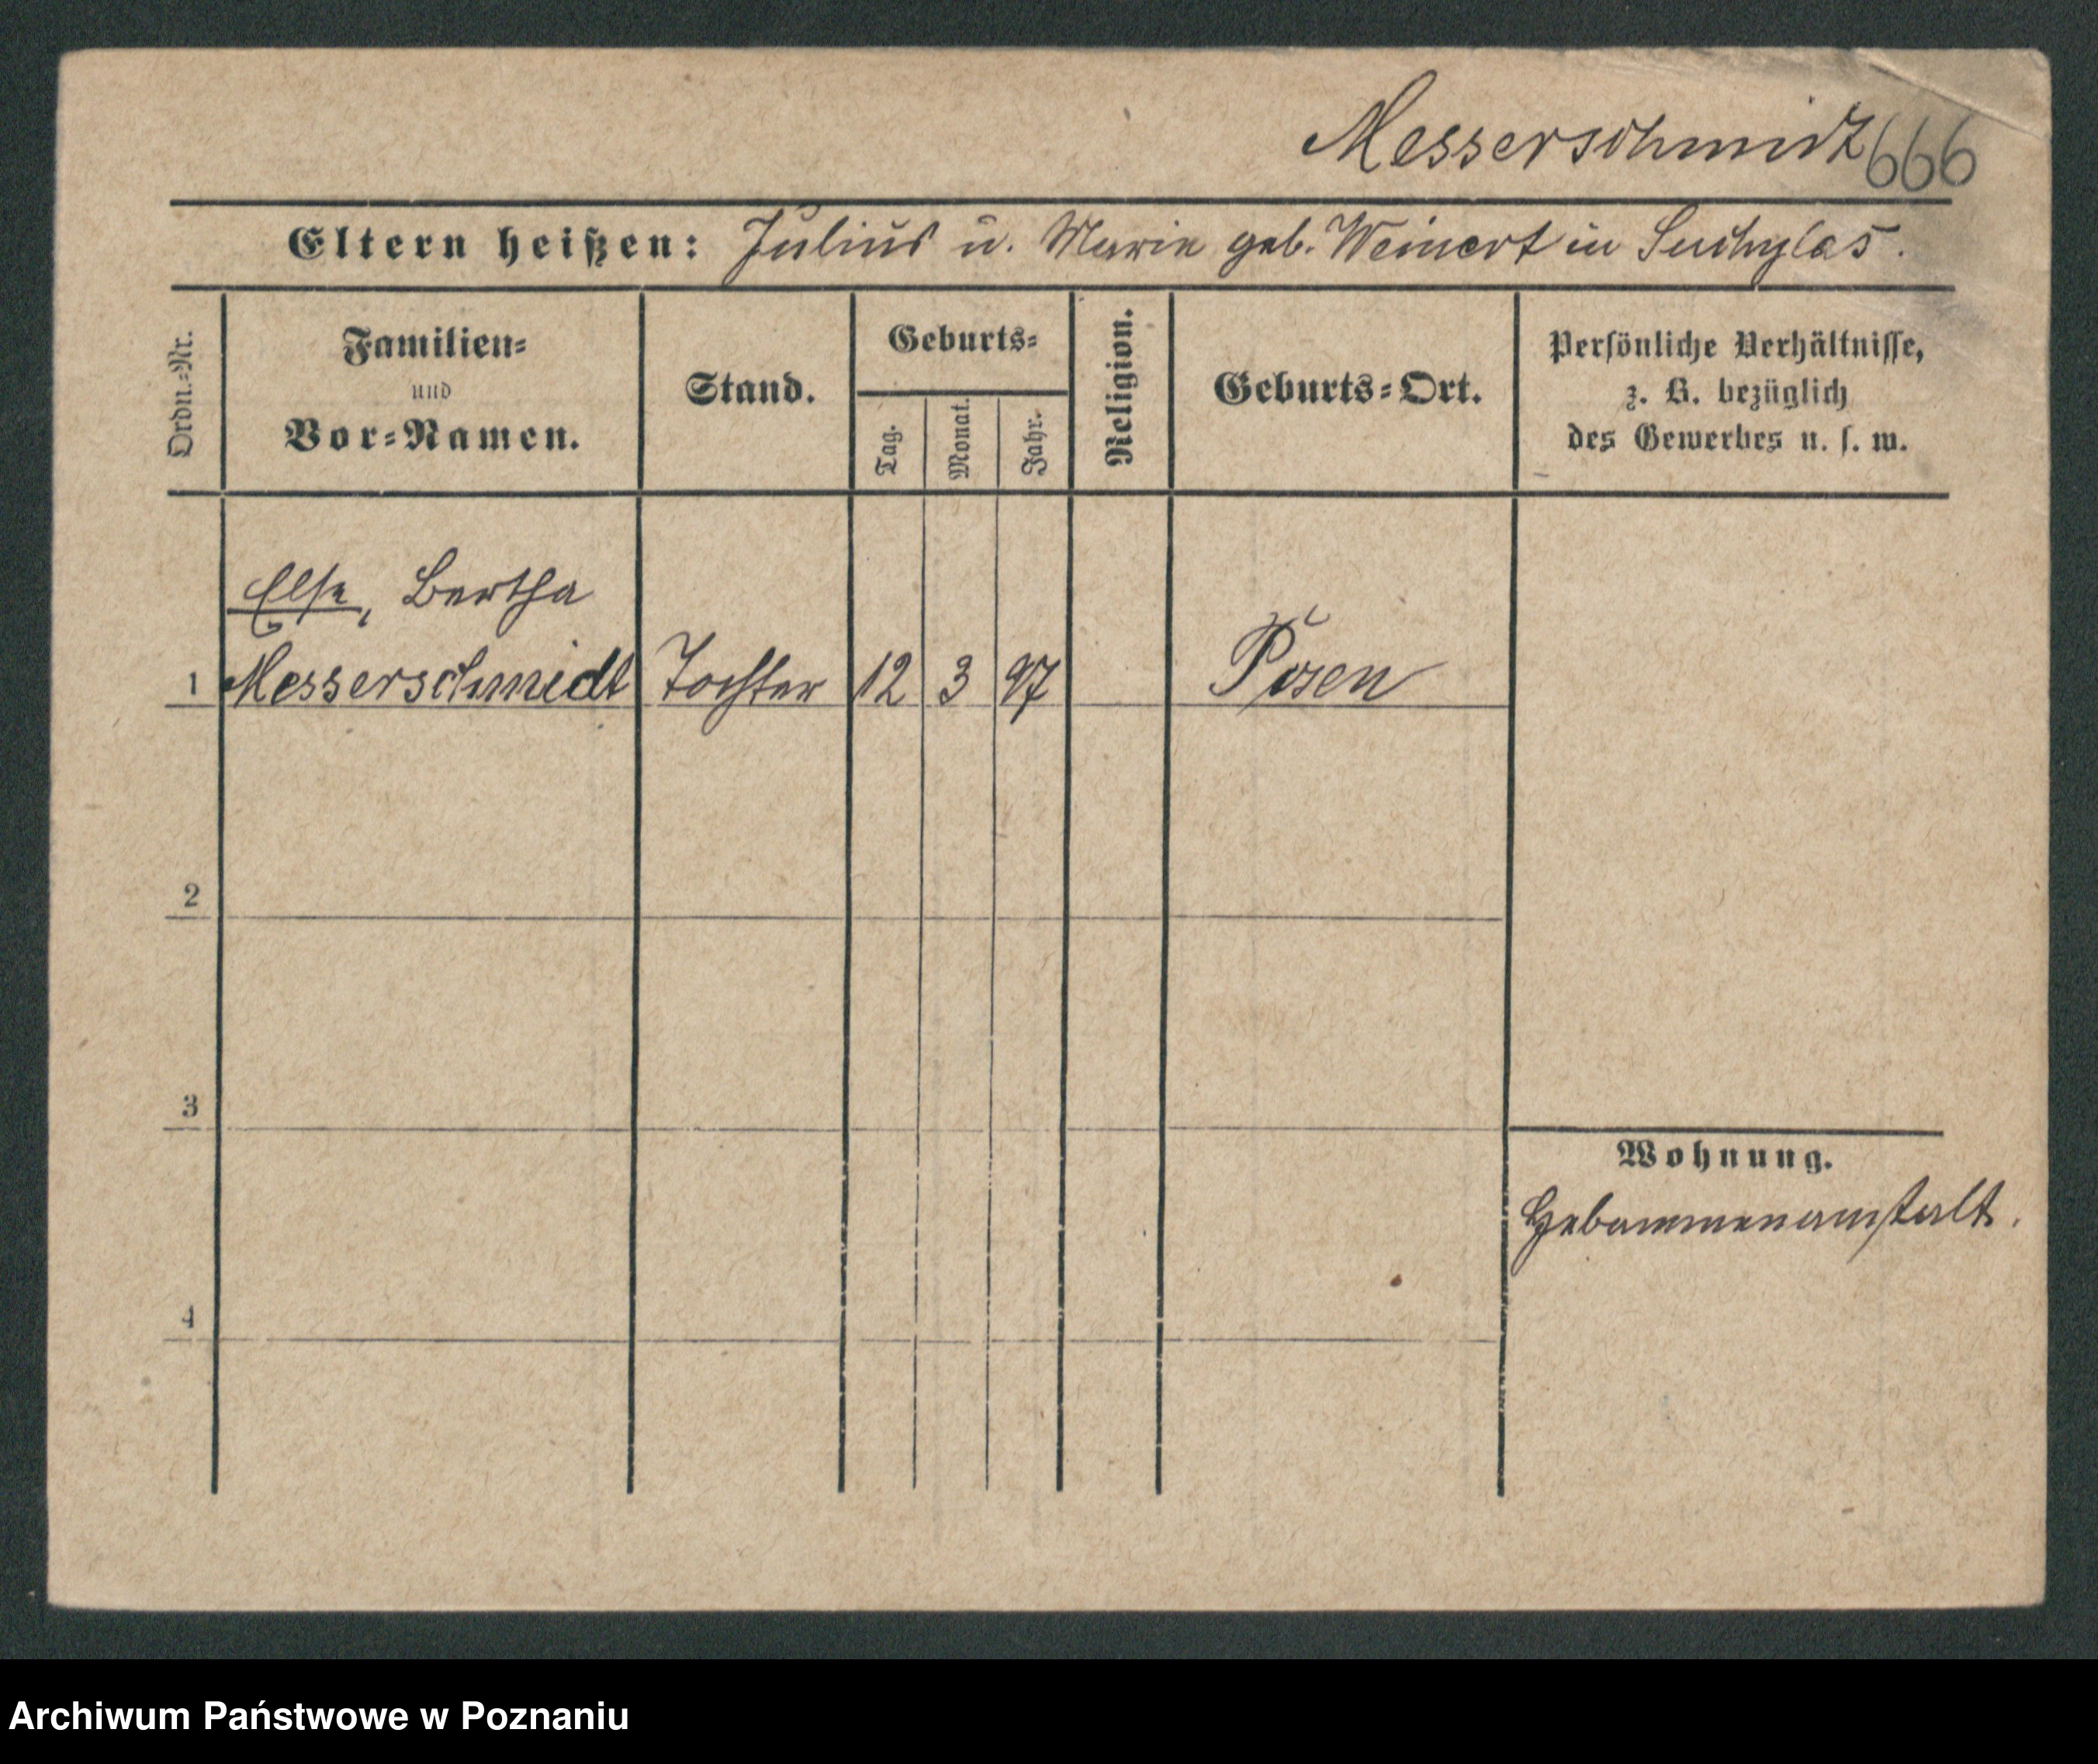 Messerschmidt 666
Eltern heißen: Julius u. Marie geb. Weinert in Suchylas.
Ordn.=Nr.
Familien=
und
Vor=Namen.
Stand.
Geburts=
Tag.
Monat.
Jahr.
Religion.
Geburts=Ort.
Persönliche Verhältnisse,
z. B. bezüglich
des Gewerbes u. s. w.
Else, Bertha
1 Messerschmidt Tochter 12 3 97 Posen
2
3
Wohnung.
Hebammenanstalt.
4
Archiwum Państwowe w Poznaniu